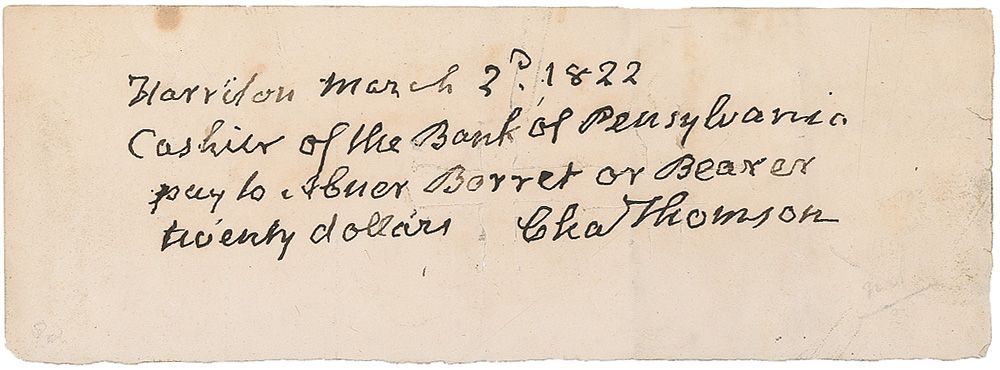 Harriton March 2d. 1822
Cashier of the Bank of Pensylvania
pay to Abner Borret or Bearer
twenty dollars Chas Thomson